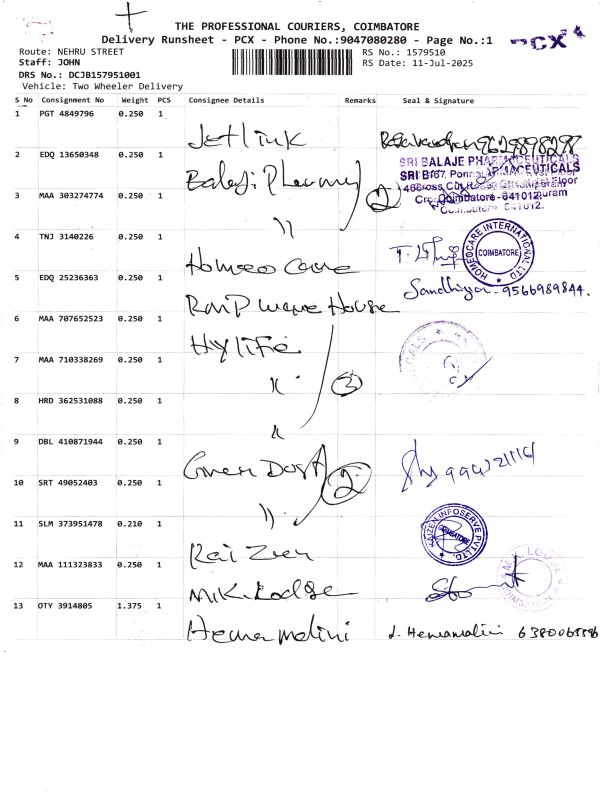 THE PROFESSIONAL COURIERS, COIMBATORE
Delivery Runsheet - PCX - Phone No.:9047080280 - Page No.:1
PCX
Route: NEHRU STREET
RS No.: 1579510
Staff: JOHN
RS Date: 11-Jul-2025
DRS No.: DCJB157951001
Vehicle: Two Wheeler Delivery
S No Consignment No Weight PCS Consignee Details Remarks Seal & Signature
1 PGT 4849796 0.250 1
Jetlink 9629898298
2 EDQ 13650348 0.250 1
Balaji Pharmacy 2
SRI BALAJE PHARMACEUTICALS
3 MAA 303274774 0.250 1
"
Coimbatore - 641012.
4 TNJ 3140226 0.250 1
Homeo Care
HOMEOCARE INTERNATIONAL LTD COIMBATORE
5 EDQ 25236363 0.250 1
RmP ware House
Sandhiya - 9566989844.
6 MAA 707652523 0.250 1
Hylife
7 MAA 710338269 0.250 1
" 3
8 HRD 362531088 0.250 1
"
9 DBL 410871944 0.250 1
Green Dost
10 SRT 49052403 0.250 1
" 2
11 SLM 373951478 0.210 1
Kaizen
KAIZEN INFOSERVE PVT LTD. COIMBATORE
12 MAA 111323833 0.250 1
M.K. Lodge
M.K. LODGE COIMBATORE
13 OTY 3914805 1.375 1
Hemamalini J. Hemamalini